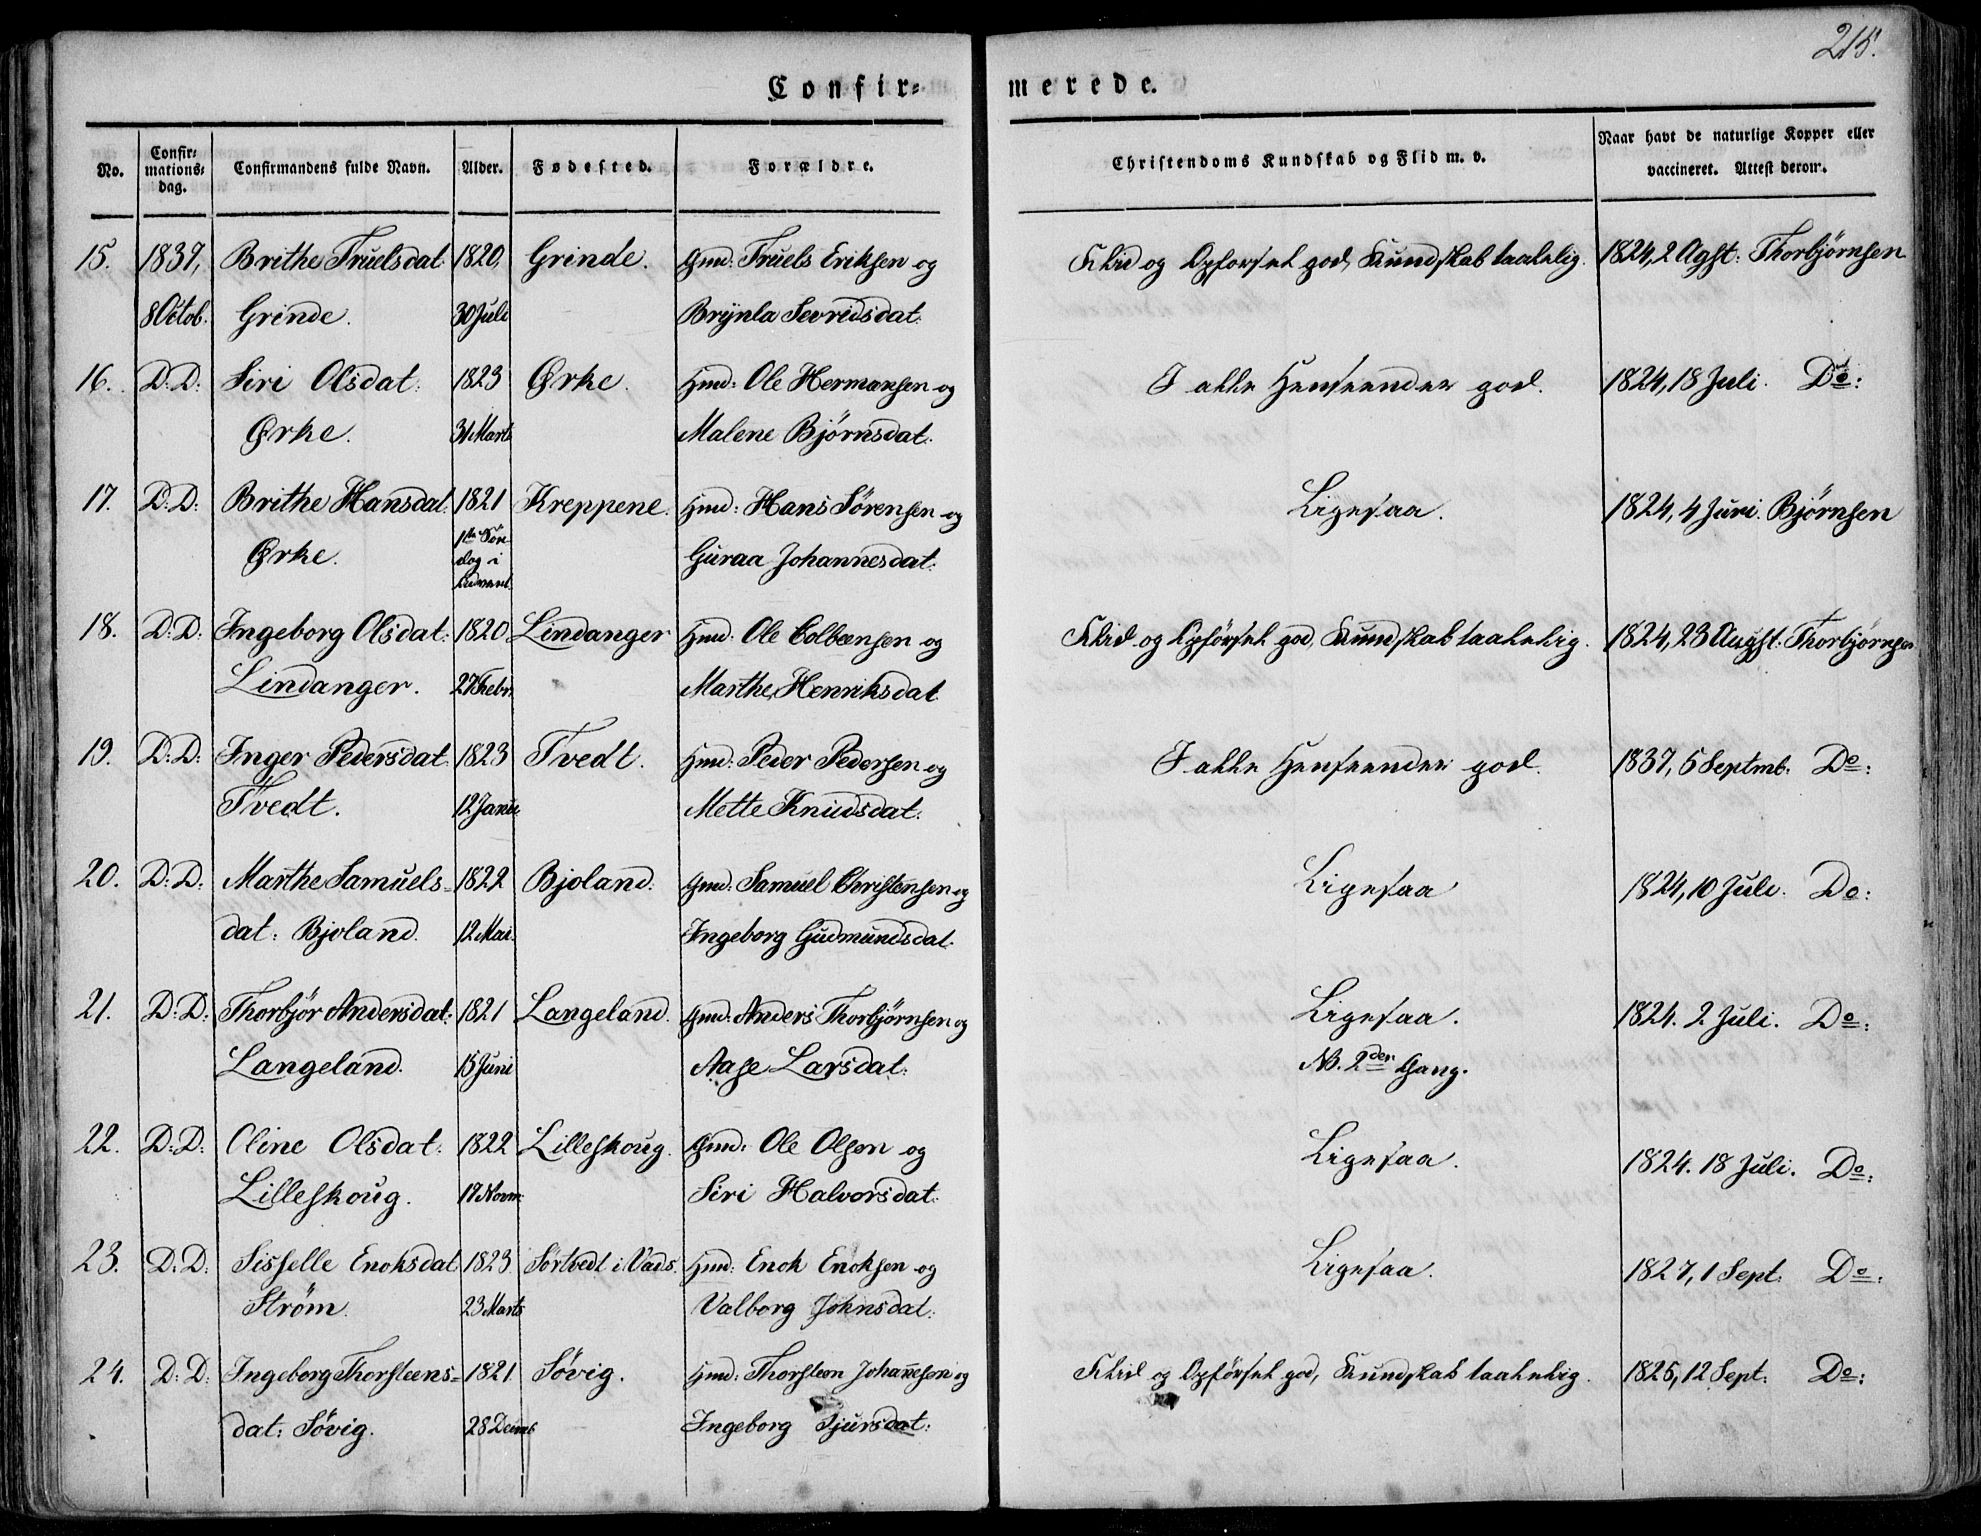 215.
Confir= merede.
No. Confir= mations= dag. Confirmandens fulde Navn. Alder. Fødested. Forældre. Christendoms Kundskab og Flid m. v. Naar havt de naturlige Kopper eller vaccineret. Attest derom.
15. 1837, Brithe Truelsdat: 1820, Grinde. Gmd: Truels Eriksen og Flid og Opførsel god, Kundskab taalelig. 1824, 2 Agst: Thorbjørnsen
8 Octob. Grinde. 30 Juli Brynla Sevridsdat:
16. D: D: Siri Olsdat: 1823 Ørke. Hmd: Ole Hermansen og I alle Henseender god. 1824, 18 Juli. Do:
Ørke. 31 Marts Malene Bjørnsdat:
17. D: D: Brithe Hansdat: 1821 Kreppene. Hmd: Hans Sørensen og Ligesaa. 1824, 4 Juni. Bjørnsen
Ørke. 1ste Søn- dag i Advent. Guraa Johannesdat:
18. D: D: Ingeborg Olsdat: 1820 Lindanger Hmd: Ole Colbeensen og Flid og Opførsel god, Kundskab taalelig. 1824, 23 Augst: Thorbjørnsen
Lindanger. 27 Febr. Marthe Henriksdat
19. D: D: Inger Pedersdat: 1823 Tvedt. Hmd: Peder Pedersen og I alle Henseender god. 1837, 5 Septmb. Do:
Tvedt. 12 Janu. Mette Knudsdat:
20. D: D: Marthe Samuels= 1822 Bjoland: Gmd: Samuel Christensen og Ligesaa 1824, 10 Juli. Do:
dat: Bjoland. 12 Mai. Ingeborg Gudmundsdat:
21. D: D: Thorbjør Andersdat: 1821 Langeland. Gmd: Anders Thorbjørnsen og Ligesaa. 1824. 2 Juli. Do:
Langeland. 15 Juni Aase Larsdat: NB. 2den Gang.
22. D: D: Oline Olsdat: 1822 Lilleskoug. Gmd: Ole Olsen og Ligesaa. 1824. 18 Juli. Do:
Lilleskoug. 17 Novm: Siri Halvorsdat:
23. D: D: Sisselle Enoksdat 1823. Sørtvedt i Vads. Hmd: Enok Enoksen og Ligesaa. 1827, 1 Sept: Do:
Strøm. 23 Marts Valborg Johnsdat:
24. D: D: Ingeborg Thorsteens= 1821 Søvig. Hmd: Thorsteen Johannesen og Flid og Opførsel god, Kundskab taalelig. 1825, 12 Sept: Do:
dat: Søvig. 28 Decmb Ingeborg Sjursdat: